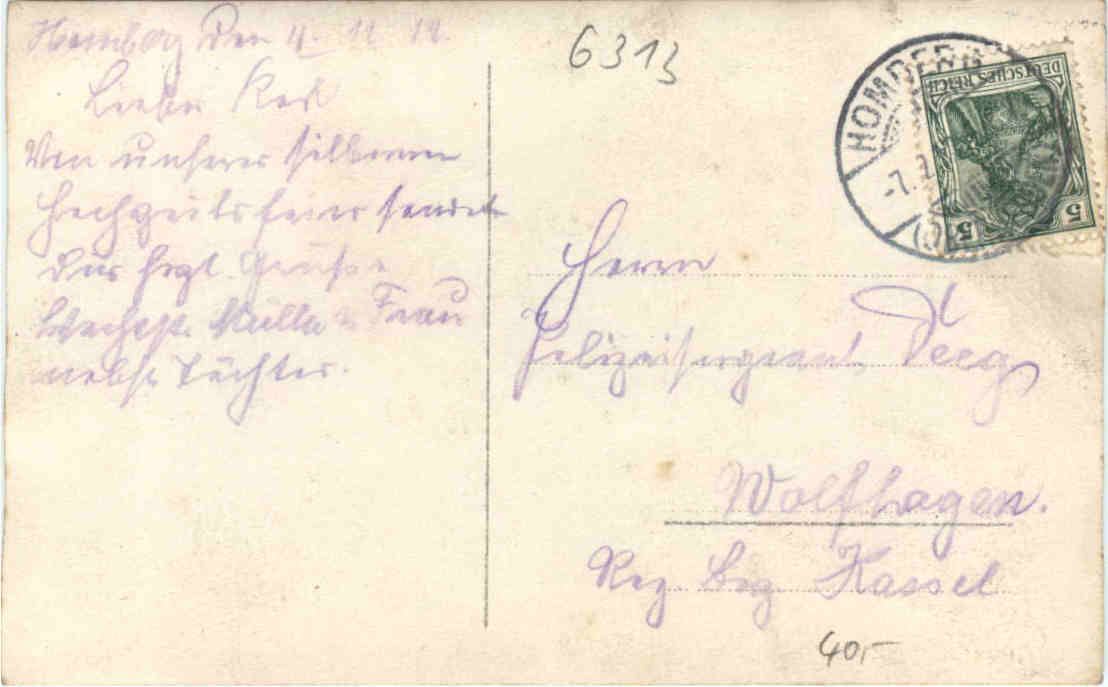 Homberg den 4. 11. 12.
Liebe
Von unserer silbernen
Hochzeitsfeier sendet
Dir hrzl. Grüße
Frau
nebst Töchter.
6313
HOMBERG
DEUTSCHES REICH
5 5
Herrn
Polizeisergeant Deeg
Wolfhagen.
Reg. Bez. Kassel
40,-